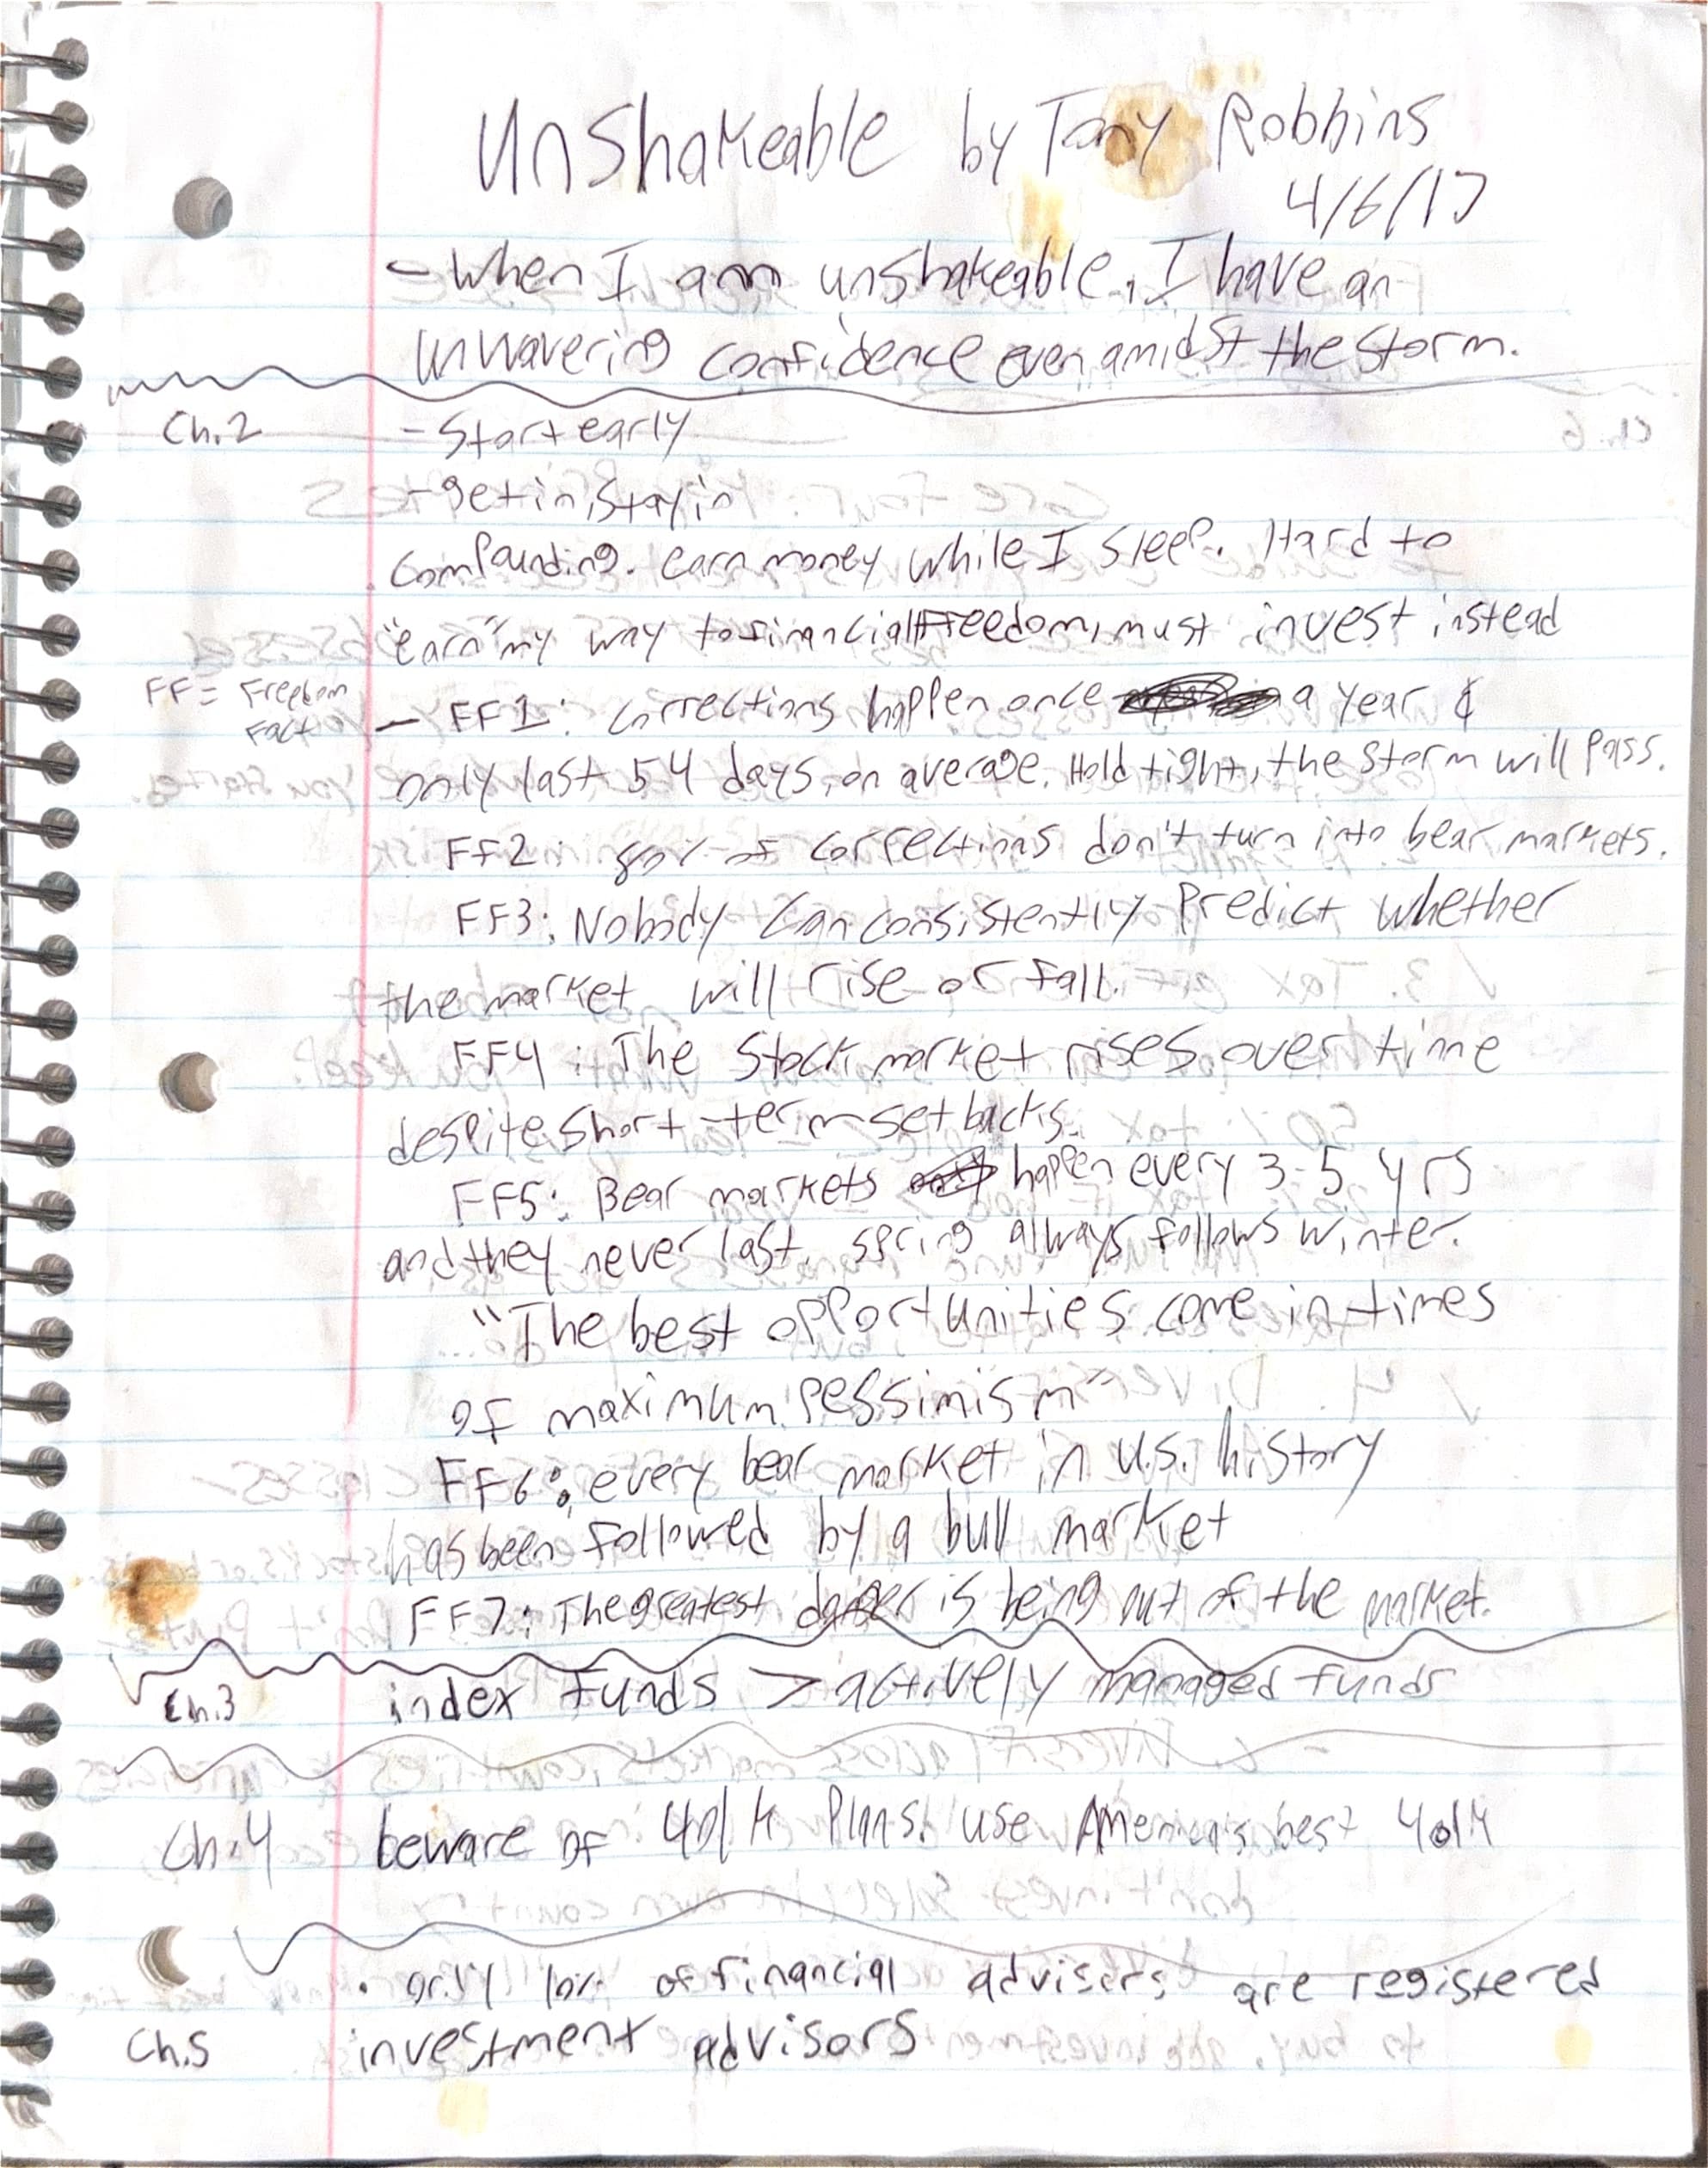 Unshakeable by Tony Robbins
4/6/17
- When I am unshakeable, I have an
unwavering confidence even amidst the storm.
Ch.2 - Start early
- get in, stay in
Compounding. earn money while I sleep. Hard to
"earn" my way to financial freedom, must invest instead
FF = Freedom Fact
- FF1: corrections happen once a year &
only last 54 days, on average. Hold tight, the storm will pass.
FF2: 80% of corrections don't turn into bear markets.
FF3: Nobody can consistently predict whether
the market will rise or fall.
FF4: The stock market rises over time
despite short-term setbacks.
FF5: Bear markets happen every 3-5 yrs
and they never last. spring always follows winter.
"The best opportunities come in times
of maximum pessimism"
FF6: every bear market in U.S. history
has been followed by a bull market
FF7: The greatest danger is being out of the market.
Ch.3 index funds > actively managed funds
Ch.4 beware of 401k plans. use America's best 401k
• only 10% of financial advisers are registered
Ch.5 investment advisors